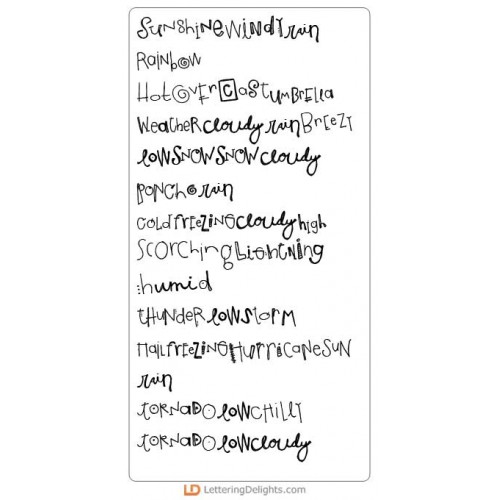 SunshineWindyrain
Rainbow
HotOverCastumbrella
WeatherCloudyrainBreezy
lowSnowSnowcloudy
Ponchorain
ColdfreezingCloudyhigh
ScorchingLightning
:humid
thunderlowstorm
HailfreezingHurricaneSun
rain
tornadolowchilly
tornadolowcloudy
LD LetteringDelights.com